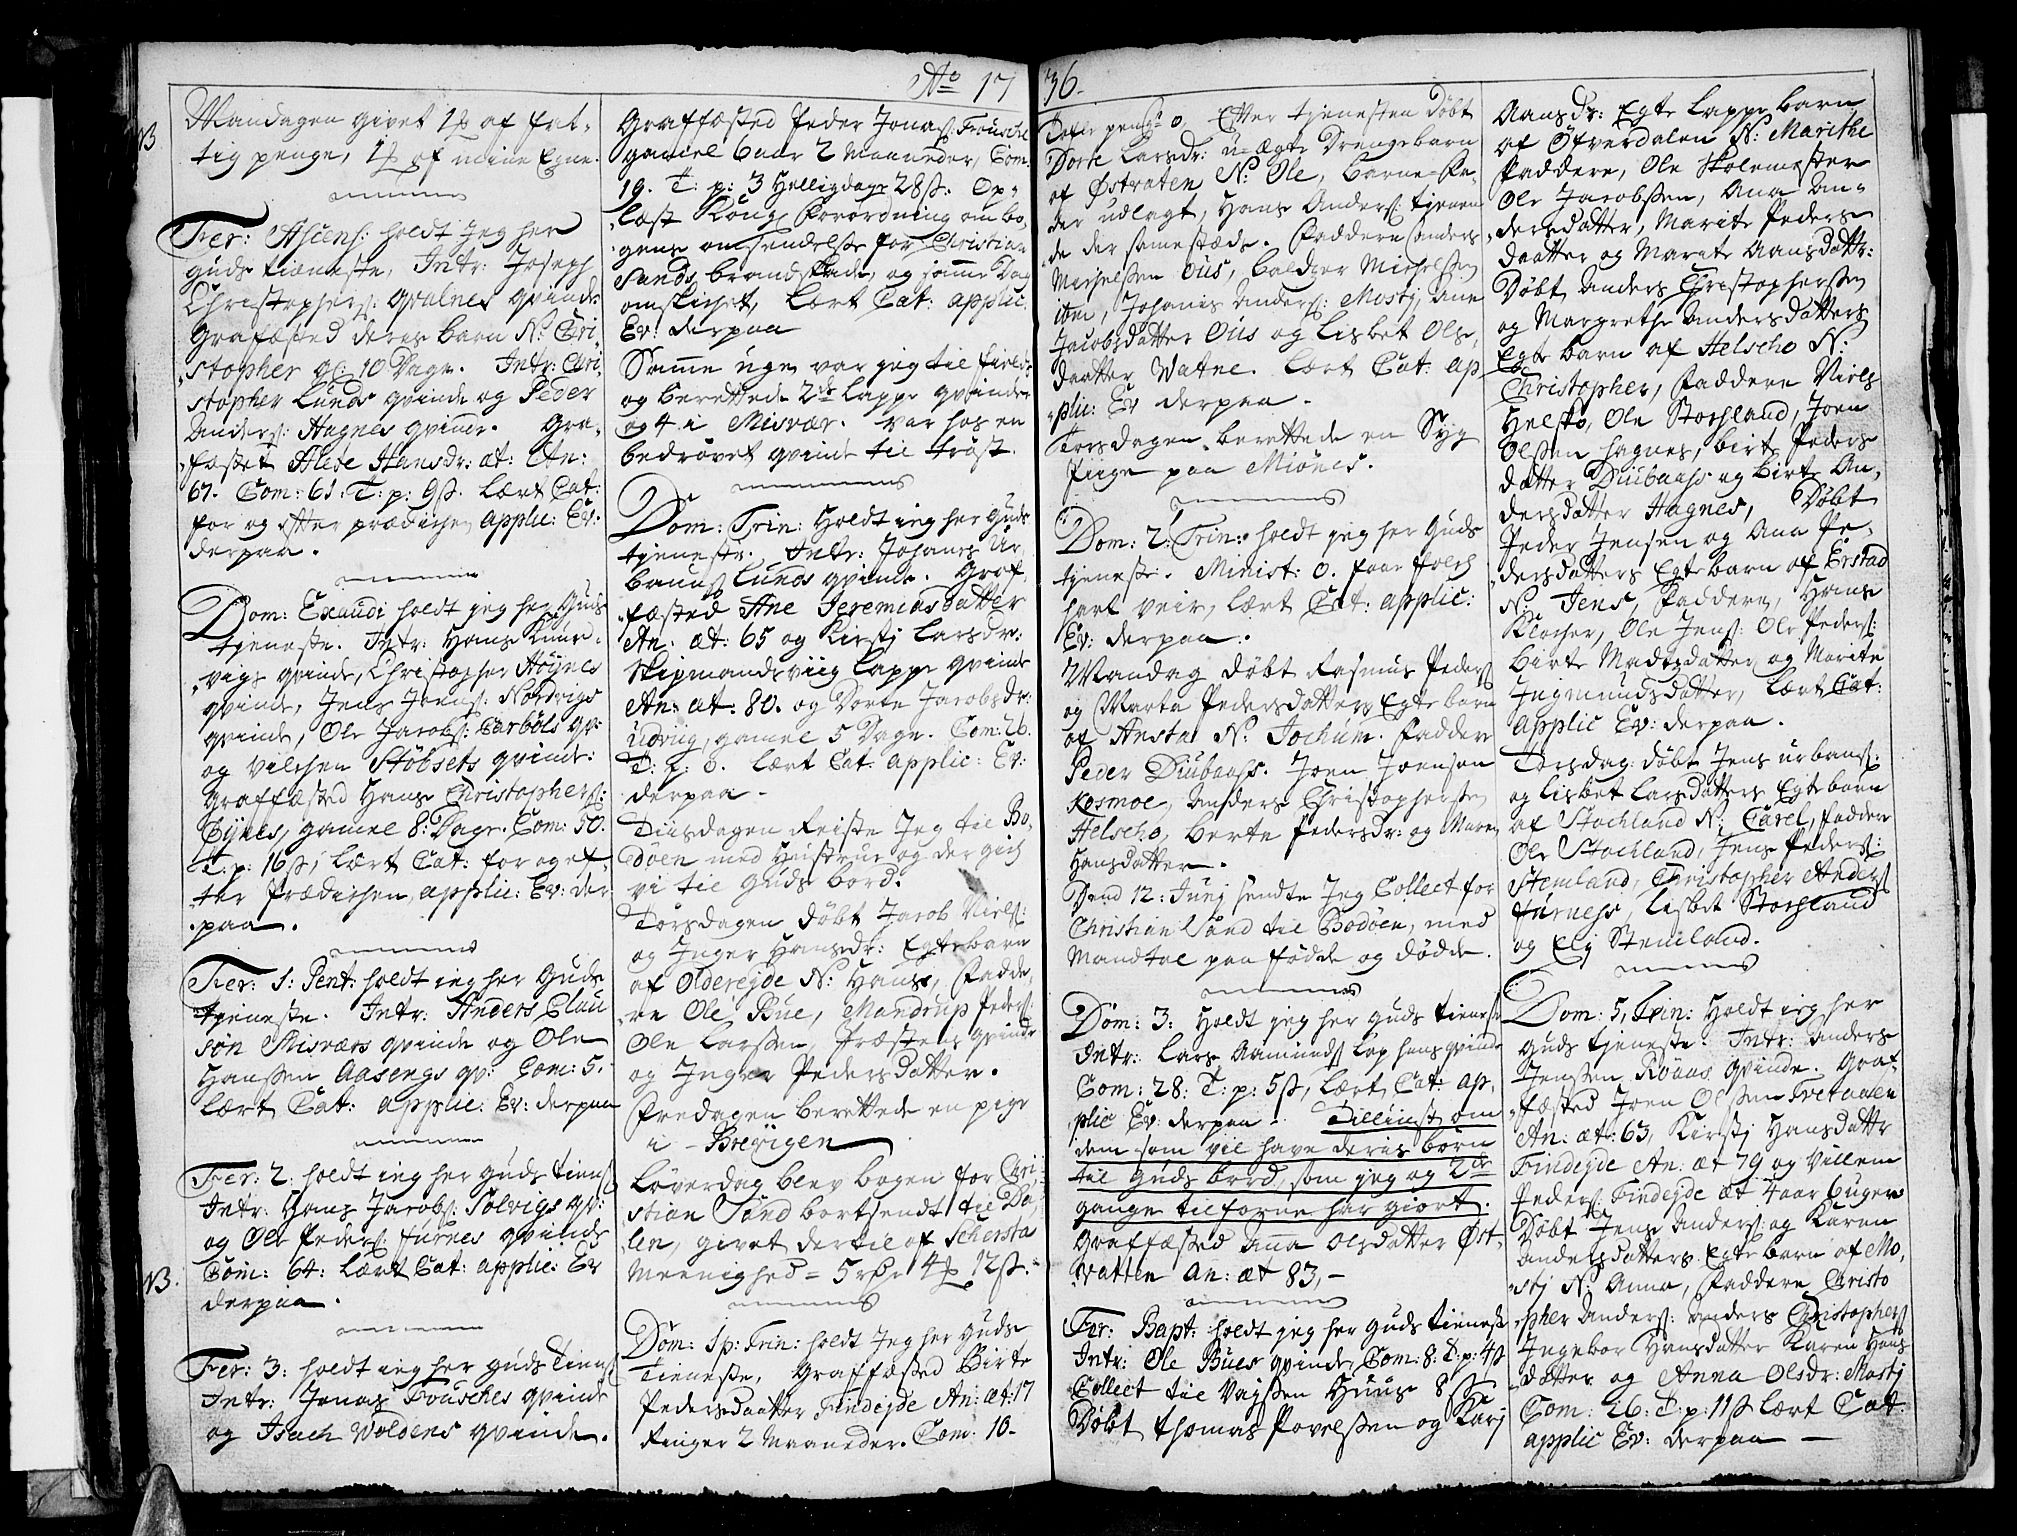 No 17
36.
NB
Mandagen givet 1 af fat¬
tig penge, 1 af mine Egne.
Fer: Ascens: holdt Jeg her
guds tieneste, Intr: Joseph
Christophers: Gvalnes qvinde
Grafæsted deres barn N: Chri¬
stopher gl: 10 Dage. Intr: Chri¬
stopher Lunds qvinde og Peder
Anders: Hagnes qvinde. Gra¬
fæstet Alese Hansdr: æt: An:
67. Com: 61. T: p: 9ß. lært Cat:
for og efter prædichen applic: Ev:
derpaa.
Dom: Exaudi holdt jeg her Guds
tjeneste. Intr: Hans
vigs qvinde, Christopher Høÿnes
qvinde, Jens Joens: Nordvigs
qvinde, Ole Jacobs: Carbøls qv:
og Vilchen Støbsets qvinde:
Graffæsted Hans Christophers:
Eÿnes, gamel 8: Dage. Com: 50.
T: p: 16ß, lært Cat: for og ef¬
ter Prædichen, applic: Ev: der
paa.
Fer: 1: Pent: holdt jeg her Guds
tjeneste. Intr: Anders Clau
søn Misværs qvinde og Ole
Hanssen Aasengs qv: Com: 5.
lært Cat: applic: Ev: derpaa
Fer: 2: holdt jeg her guds tienes
Intr: Hans Jacobs: Solvigs qv:
og Ole Peders: Furnes qvinde
Com: 64: lært Cat: applic: Ev
NB.
derpaa.
Fer: 3: holdt jeg her guds tienes
Intr: Jonas Fouskes qvinde
og Isach Woldens qvinde.
Graffæsted Peder Jonas: Fouske
gamel 6 aar 2 Maaneder, Com.
19. T: p: 3 Helligdage 28ß. Op¬
læst Kongs Forordning om bo¬
gens omsendelse for Christian
Sands brandskade, og samme Dag
omskichet, lært Cat: applic.
Ev: derpaa
Samme uge var jeg til fields
og berettede 2de lappe qvinder
og 4 i Misvær. var hos en
bedrøvet qvinde til trøst.
Dom: Trin: Holdt jeg her Guds
tjeneste. Intr: Johanes Ur¬
banus Lunds qvinde. Graf¬
fæsted Ane Jeremiasdatter
An: æt: 65 og Kirstj Larsdr:
Skipmandsviig lappe qvinde
An: æt: 80. og Dorte Jacobsdr:
Udrug, gamel 5 Dage. Com: 26.
T: p: 0. lært Cat: applic: Ev:
derpaa.
Tiisdagen Reiste Jeg til Bo¬
døen med Hustrue og der gich
vi til Guds bord.
Torsdagen døbt Jacob Niels:
og Inger Hansdr: Egte barn
af Oldereyde N: Hans, Fadde¬
re Ole Bue, Mandrup Peders:
Ole Larssen, Præstens qvinde
og Inger Pedersdatter.
Fredagen berettede en pige
i Brevigen
Løverdag blev bogen for Chri¬
stian Sand bortsendt til Da¬
len, givet dertil af Schersta
Meenighed = 5 rdr 4 12ß.
Dom: 1 p: Trin: holdt Jeg her Guds
Tieneste, Graffæsted Birte
Pedersdaatter Findejde An: æt: 17
Ringer 2 Maaneder. Com: 10.
0. Efter tjenesten døbt
Dorte Larsdr: u-ægte Drengebarn
af Østvaten N: Ole, barne-Fa¬
der udlagt, Hans Anders: tjenen
de der samestæds. Faddere Anders
Michelsen Ous, Baldzer Michelsen
ibm, Johanis Anders: Mostj Ane
Jacobsdatter Ous og Lisbet Ols¬
daatter Watne. lært Cat: ap¬
plic: Ev derpaa.
Torsdagen berettede en Syg
Piige paa Miønes.
Dom: 2: Trin: holdt jeg her Guds
tjeneste. Minist: 0. faae folch
hart veir, lært Cat: applic:
Ev: derpaa.
Mandag døbt Rasmus Peders
og Marta Pedersdatters Egte barn
af Ansta N: Jochum. Fadder
Peder Diubaass. Joen Joensøn
Kosmoe, Anders Christophersen
Helscho, Berte Pedersdr: og Maren
Hansdatter.
Dend 12: Junj sendte Jeg Collect for
Christian Sand til Bodøen, med
Mandtal paa fødde og dødde.
Dom: 3: Holdt jeg her guds tieneste
Intr: Lars Aamunds Lap hans qvinde
Com: 28: T: p: 5ß, lært Cat: ap¬
plic Ev: derpaa. Tillinst om
dem som vil have deris børn
til Guds bord, som jeg og 2de
gange tilforne har giort.
Graffæsted Ana Olsdatter Øst¬
vatten An: æt 83,—
Fer: Bapt: holdt jeg her guds tieneste
Intr: Ole Bues qvinde, Com: 8: T: p: 4ß
Collect til Vaÿsen Huus 8ß
Døbt Thomas Povelssen og Karj
Aansdr: Egte Lappe barn
af Øfverdalen N: Marithe
Faddere, Ole Skolemester
Ole Jacobssen, Ana An¬
dersdatter, Marite Peders
daatter og Marite Aansdattr:
Døbt Anders Christophersen
og Margrethe Andersdatters
Egte barn af Helscho N:
Christopher, Faddere Niels
Helsko, Ole Storsland, Joen
Olssen Hagnes, birte Peders
datter Diubaass og birte An¬
dersdatter Hagnes, Døbt
Peder Jensen og Ana Pe¬
dersdatters Egte barn af Erstad
N: Jens, Faddere, Hans
Klocher, Ole Jens: Ole Peders:
Birte Madtsdatter og Marite
Ingmundsdatter, lært Cat:
applic Ev: derpaa.
Torsdag døbt Jens Urbans:
og Lisbet Larsdatters Egte barn
af Stochland N: Carel, faddere
Ole Stochland, Jens Peders:
Stemland, Christopher Anders
Furness, Lisbet Storsland
og Elj Stemland.
Dom: 5, Trin: Holdt jeg her
Guds tjeneste. Intr: Anders
Jenssen Røaas qvinde. Graf¬
fæsted Joen Olssen Tretaalen
An: æt: 63, Kirstj Hansdattr
Findejde An: æt 79 og Villem
Peders: Findejde æt 4 aar 6 uger
Døbt Jens Anders: og Karen
Andersdatters Egte barn af Mo¬
stj N: Anna, Faddere Christo
pher Anders: Anders Christophers
Ingebor Hansdatter Karen Hans
datter og Anna Olsdr: Mostj
Com: 26: T: p: 11ß lært Cat
applic Ev: derpaa —